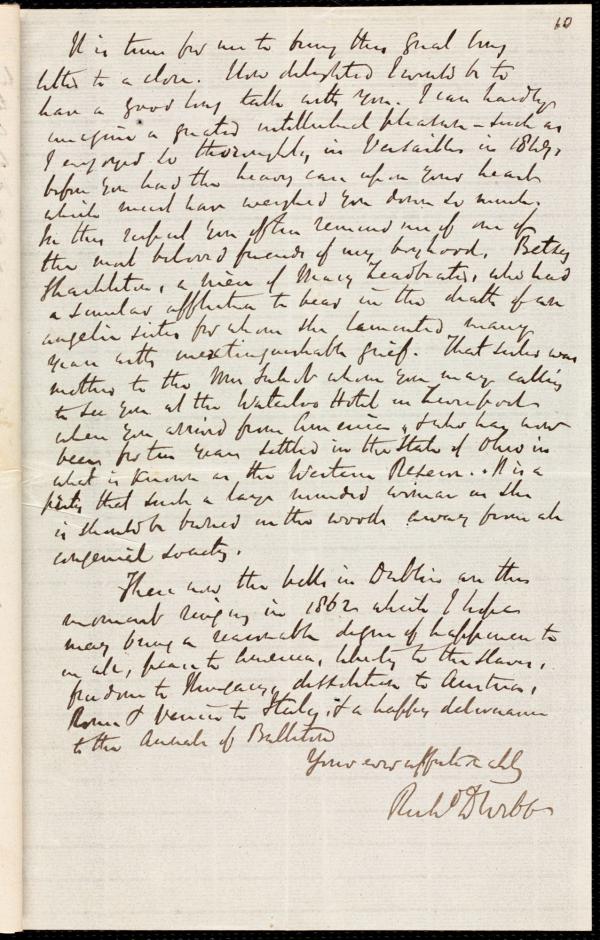 10
It is time for me to bring this great long
letter to a close. How delighted I would be to
have a good long talk with you. I can hardly
imagine a greater intellectual pleasure - such as
I enjoyed so thoroughly in Versailles in 1849,
before you had the heavy care upon your heart
which must have weighed you down so much.
In this respect you often remind me of one of
the most beloved friends of my boyhood, Betsy
Shackleton, a niece of Mary Leadbeater, who had
a similar affliction to bear in the death of an
angelic sister for whom she lamented many
years with inextinguishable grief. That sister was
mother to the Mrs whom you may calling
to see you at the Waterloo Hotel in Liverpool
when you arrived from America, & who has now
been for ten years settled in the State of Ohio in
what is known as the Western Reserve. It is a
pity that such a large minded woman as she
is should be buried in the woods away from all
congenial society.
There now the bells in Dublin are this
moment ringing in 1862 which I hope
may bring a reasonable degree of happiness to
us all, peace to America, liberty to the slaves,
freedom to Hungary, dissolution to Austria,
Rome & Venice to Italy, & a happy deliverance
to the
Yours ever affectionately
Richd D Webb